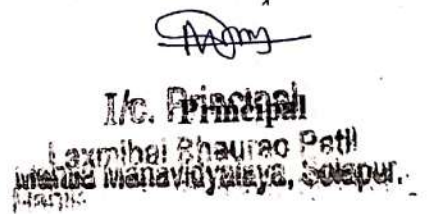 I/c. Principal
Laxmibai Bhaurao Patil
Mahila Manavidyalaya, Solapur.